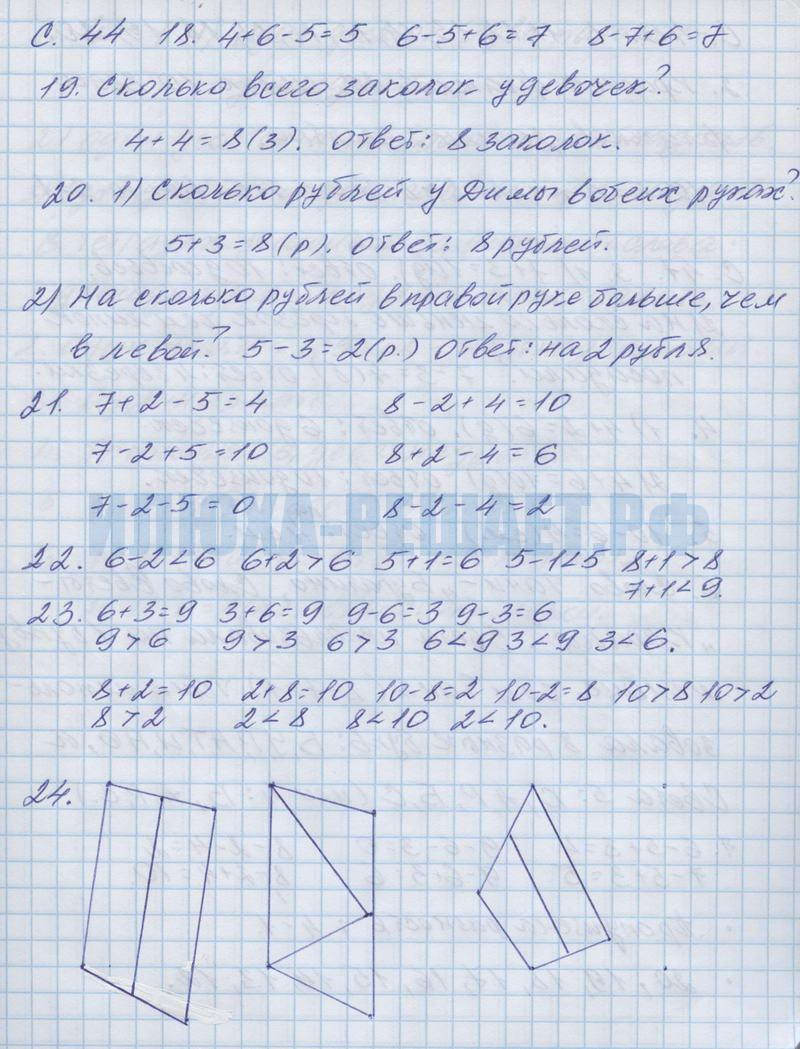 С. 44 18. 4+6-5=5 6-5+6=7 8-7+6=7
19. Сколько всего заколок у девочек?
4+4=8(з). Ответ: 8 заколок.
20. 1) Сколько рублей у Димы в обеих руках?
5+3=8(р). Ответ: 8 рублей.
2) На сколько рублей в правой руке больше, чем
в левой? 5-3=2(р.) Ответ: на 2 рубля.
21. 7+2-5=4 8-2+4=10
7-2+5=10 8+2-4=6
7-2-5=0 8-2-4=2
ИЛЮХА-РЕШАЕТ.РФ
22. 6-2<6 6+2>6 5+1=6 5-1<5 8+1>8
7+1<9.
23. 6+3=9 3+6=9 9-6=3 9-3=6
9>6 9>3 6>3 6<9 3<9 3<6.
8+2=10 2+8=10 10-8=2 10-2=8 10>8 10>2
8>2 2<8 8<10 2<10.
24.